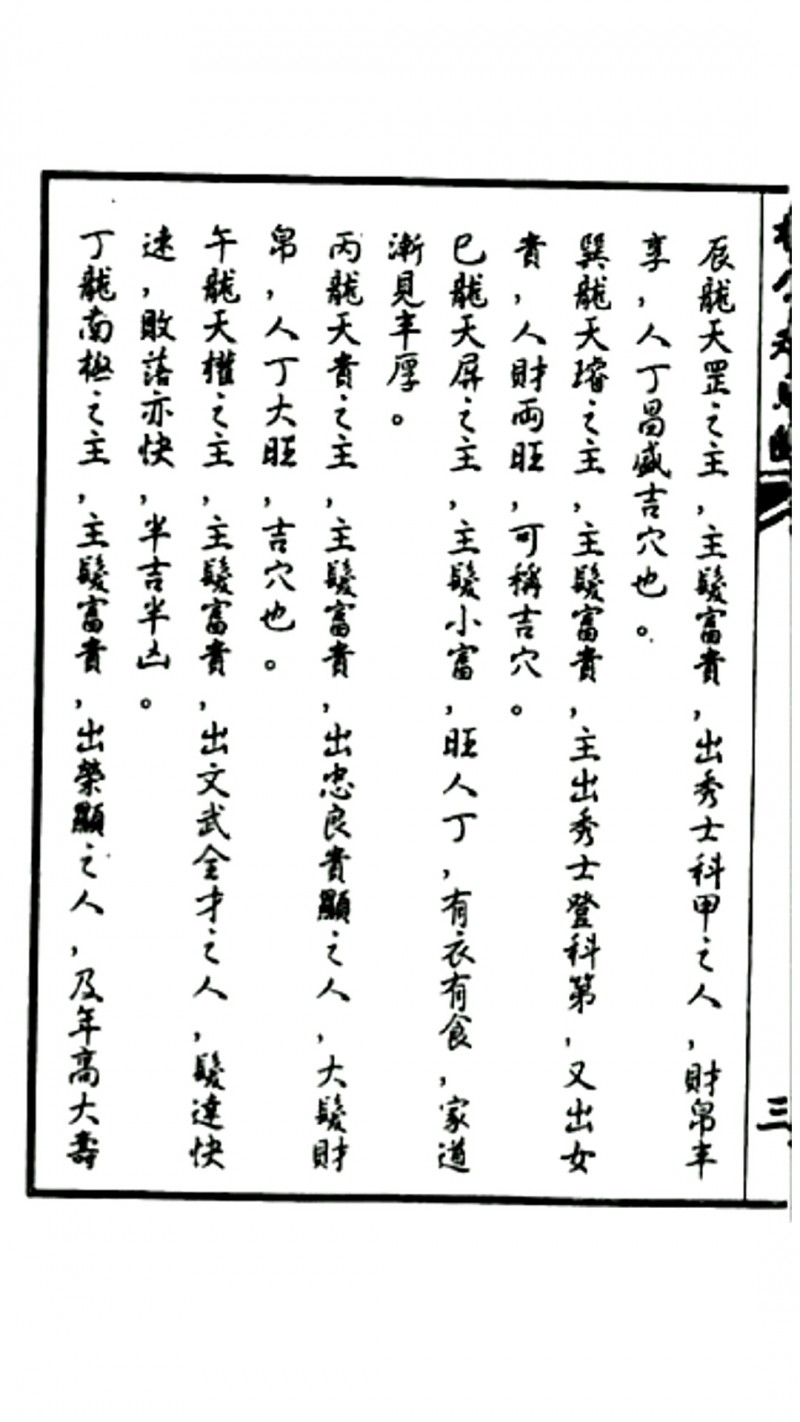 辰龍天罡之主，主髮富貴，出秀士科甲之人，財帛丰
享，人丁昌盛吉穴也。
巽龍天璿之主，主髮富貴，主出秀士登科第，又出女
貴，人財両旺，可稱吉穴。
巳龍天屏之主，主髮小富，旺人丁，有衣有食，家道
漸見丰厚。
丙龍天貴之主，主髮富貴，出忠良貴顯之人，大髮財
帛，人丁大旺，吉穴也。
午龍天權之主，主髮富貴，出文武全才之人，髮達快
速，敗落亦快，半吉半凶。
丁龍南極之主，主髮富貴，出榮顯之人，及年高大壽